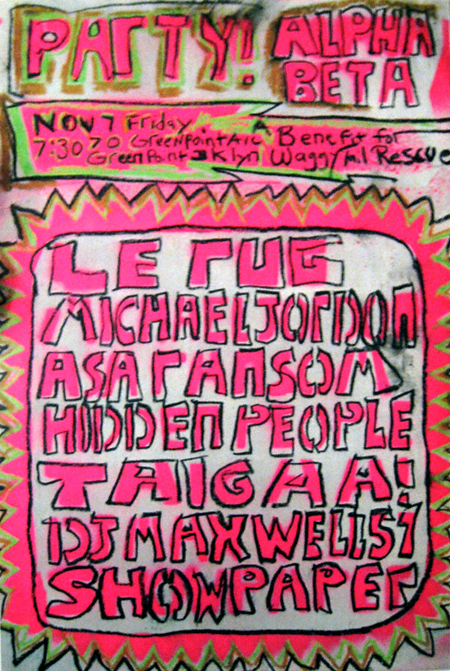 PARTY! ALPHA BETA
NOV 7 Friday A Benefit for
7:30 70 GreenPoint Ave Waggytail Rescue
GreenPoint Bklyn
LE RUG
MICHAEL JORDON
ASA RANSOM
HIDDEN PEOPLE
TAIGAA!
DJ MAXWELL 57
SHOWPAPER